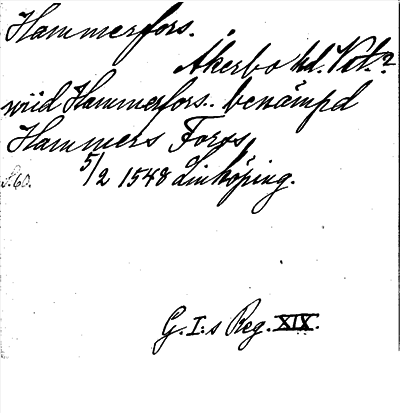 Hammerfors.
Åkerbo hd. Vstm.?
wiid Hammerfors. benämpd
Hammers Foros
S. 60. 5/2 1548 Linköping.
G. I:s Reg. XIX.